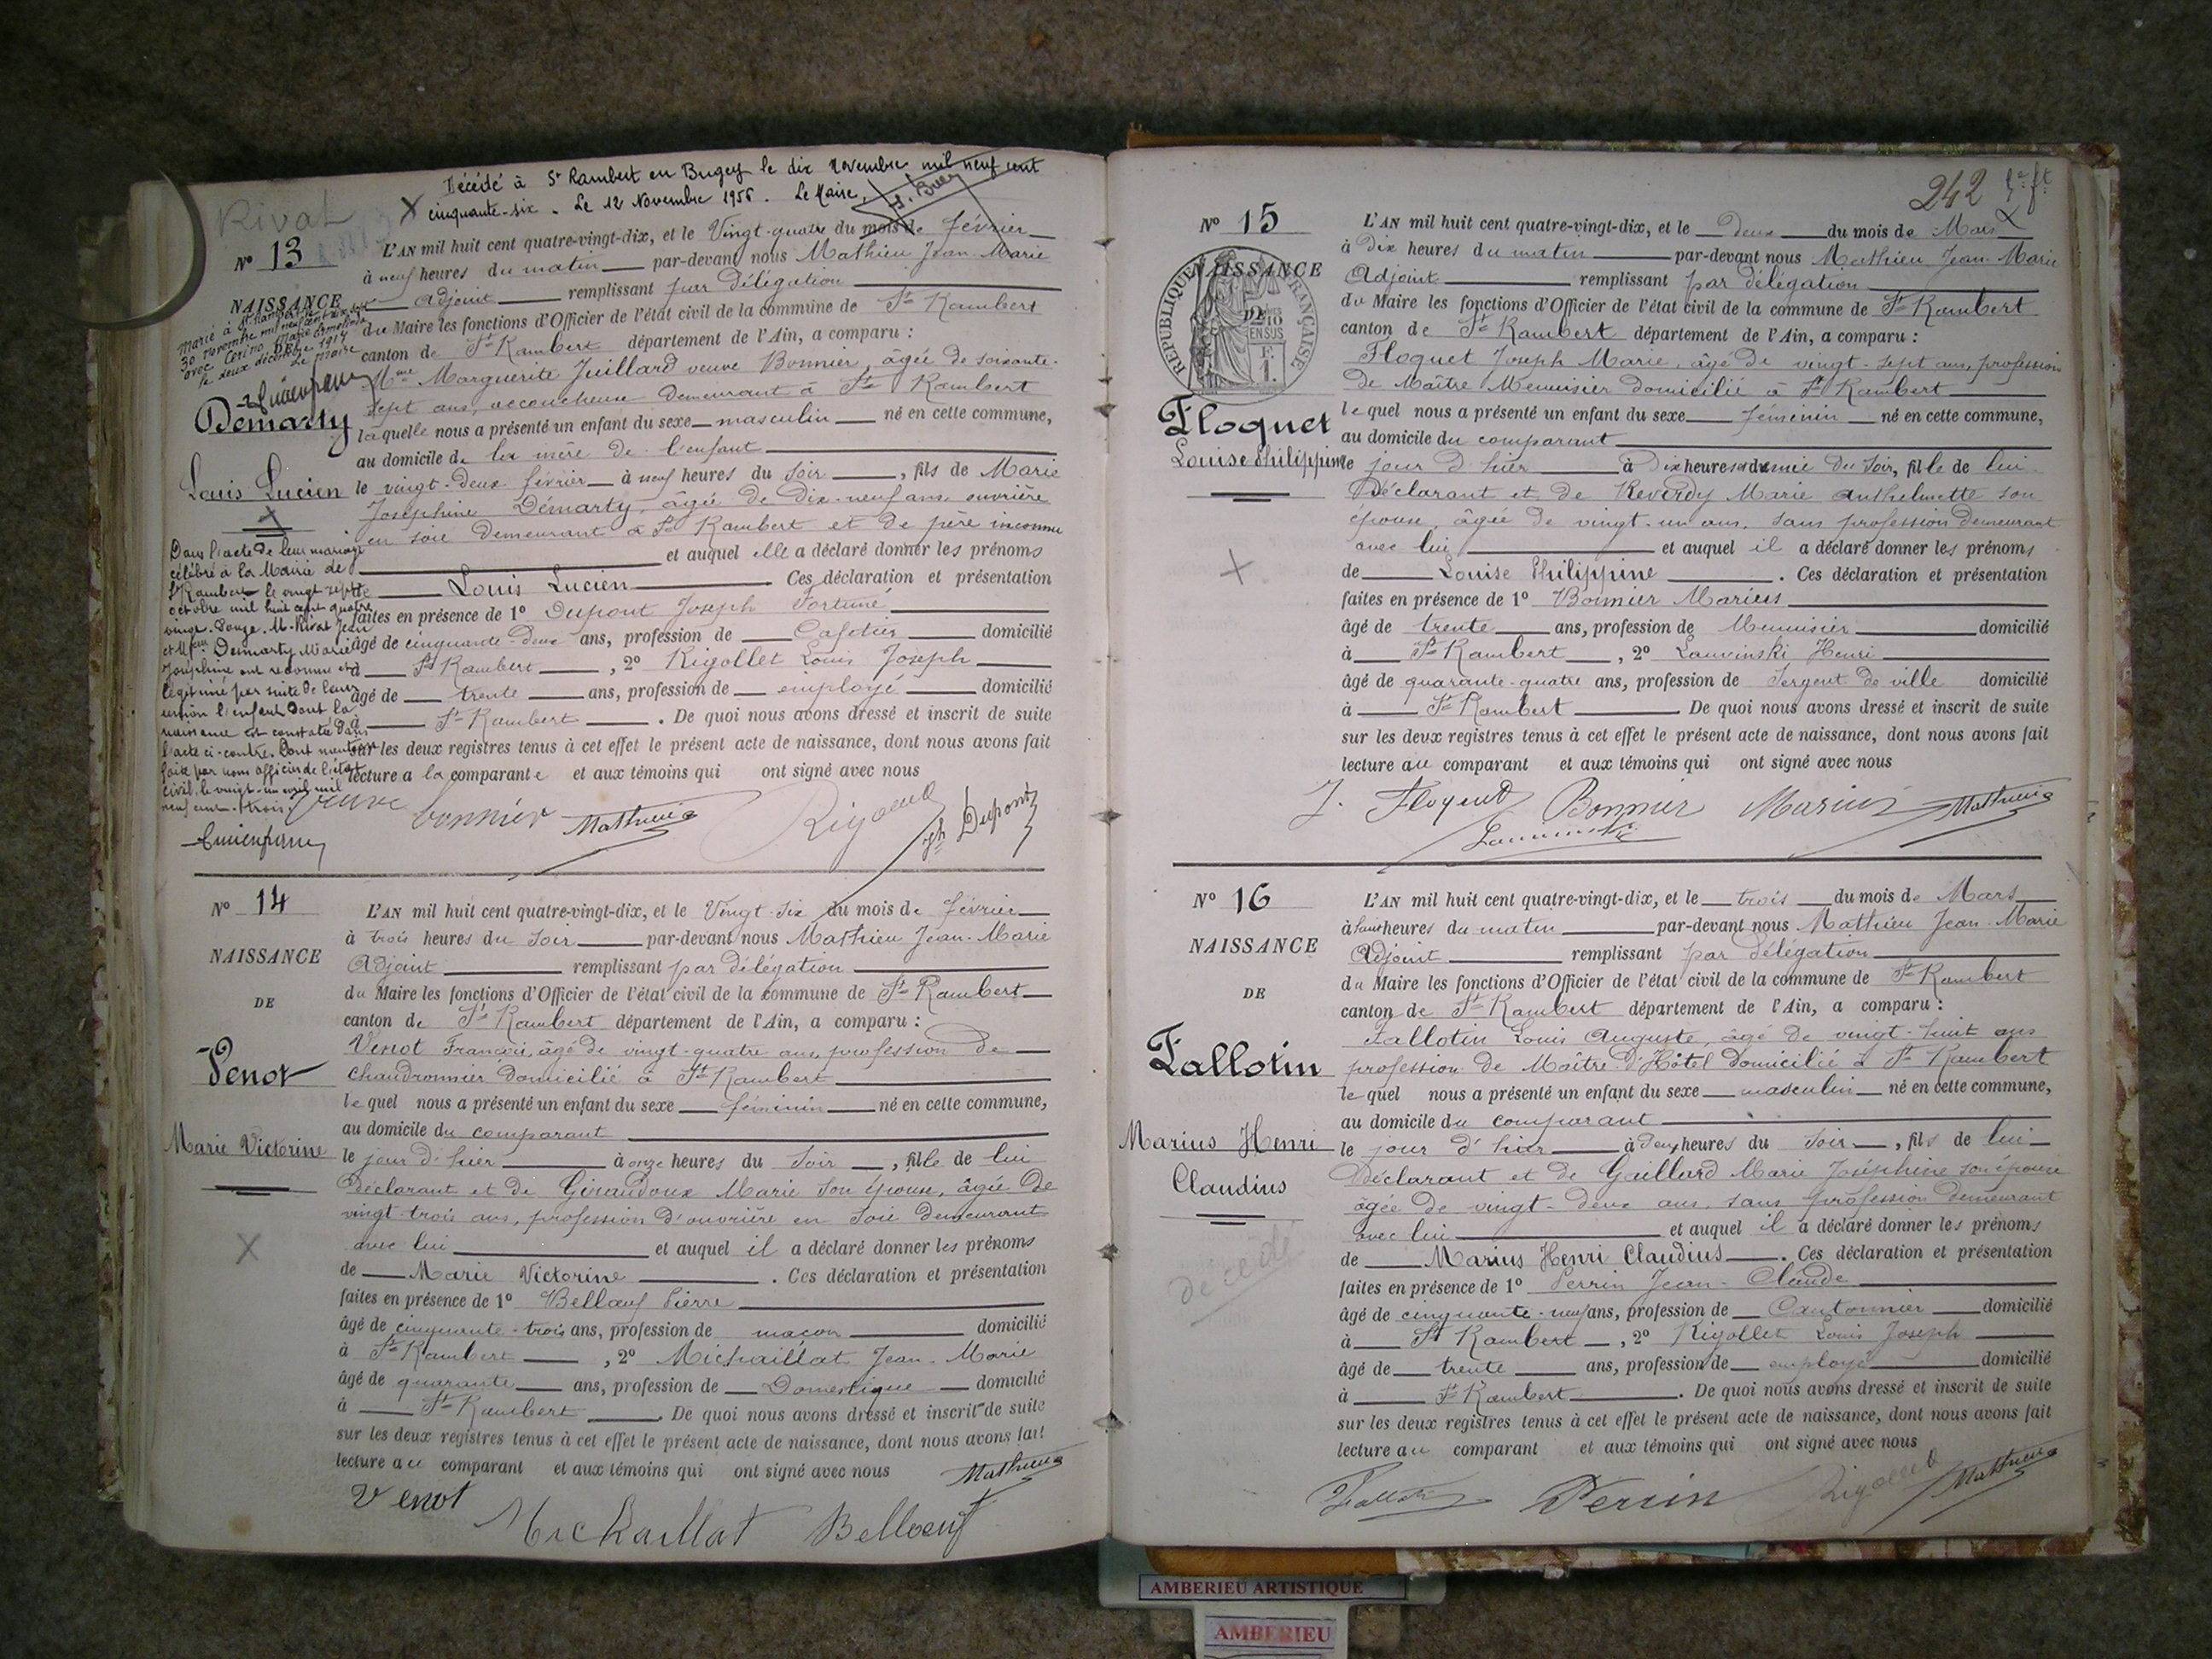 Décédé à St Rambert en Bugey le dix novembre mil neuf cent
cinquante-six. Le 12 Novembre 1956. Le Maire,
Rivat
N° 13
NAISSANCE
DE
L'AN mil huit cent quatre-vingt-dix, et le Vingt-quatre du mois de février
à neuf heures du matin par-devant nous Mathieu Jean-Marie
Adjoint remplissant par délégation
du Maire les fonctions d'Officier de l'état civil de la commune de St Rambert
canton de St Rambert département de l'Ain, a comparu :
Mme Marguerite Juillard veuve Bonnier, âgée de soixante-
sept ans, accoucheuse demeurant à St Rambert
laquelle nous a présenté un enfant du sexe masculin né en cette commune,
au domicile de la mère de l'enfant
le vingt-deux février à neuf heures du soir, fils de Marie
Joséphine Démarty, âgée de dix-neuf ans ouvrière
en soie demeurant à St Rambert et de père inconnu
et auquel elle a déclaré donner les prénoms
de Louis Lucien. Ces déclaration et présentation
faites en présence de 1° Dupont Joseph Fortuné
âgé de cinquante-deux ans, profession de Cafetier domicilié
à St Rambert, 2° Rigollet Louis Joseph
âgé de trente ans, profession de employé domicilié
à St Rambert. De quoi nous avons dressé et inscrit de suite
sur les deux registres tenus à cet effet le présent acte de naissance, dont nous avons fait
lecture a la comparante et aux témoins qui ont signé avec nous
Marié à St Rambert le
30 novembre mil neuf cent dix sept
avec Cerino Marie
le deux décembre 1917
Le Maire
Demarty
Louis Lucien
Dans l'acte de leur mariage
célébré à la Mairie de
St Rambert le vingt-sept
octobre mil huit cent quatre
vingt-douze. M. Rivat Jean
et Mme Demarty Marie
Joséphine ont reconnu et
légitimé par suite de leur
union l'enfant dont la
naissance est constatée dans
l'acte ci-contre. Dont mention
faite par nous officier de l'état
civil, le vingt-un avril mil
neuf cent trois.
veuve bonnier Mathieu Rigollet Jh Dupont
N° 14
NAISSANCE
DE
Venot
Marie Victorine
L'AN mil huit cent quatre-vingt-dix, et le Vingt-six du mois de février
à trois heures du soir par-devant nous Mathieu Jean-Marie
Adjoint remplissant par délégation
du Maire les fonctions d'Officier de l'état civil de la commune de St Rambert
canton de St Rambert département de l'Ain, a comparu :
Venot François, âgé de vingt-quatre ans, profession de
chaudronnier domicilié à St Rambert
lequel nous a présenté un enfant du sexe féminin né en cette commune,
au domicile du comparant
le jour d'hier à onze heures du soir, fille de lui
déclarant et de Giraudoux Marie son épouse, âgée de
vingt-trois ans, profession d'ouvrière en soie demeurant
avec lui et auquel il a déclaré donner les prénoms
de Marie Victorine. Ces déclaration et présentation
faites en présence de 1° Bellœuf Pierre
âgé de cinquante-trois ans, profession de maçon domicilié
à St Rambert, 2° Michaillat Jean-Marie
âgé de quarante ans, profession de Domestique domicilié
à St Rambert. De quoi nous avons dressé et inscrit de suite
sur les deux registres tenus à cet effet le présent acte de naissance, dont nous avons fait
lecture au comparant et aux témoins qui ont signé avec nous
Mathieu
Venot Michaillat Bellœuf
242
N° 15
NAISSANCE
RÉPUBLIQUE FRANÇAISE
2/10 EN SUS
Floquet
Louise Philippine
L'AN mil huit cent quatre-vingt-dix, et le deux du mois de Mars
à dix heures du matin par-devant nous Mathieu Jean-Marie
Adjoint remplissant par délégation
du Maire les fonctions d'Officier de l'état civil de la commune de St Rambert
canton de St Rambert département de l'Ain, a comparu :
Floquet Joseph Marie, âgé de vingt-sept ans, profession
de Maître Menuisier domicilié à St Rambert
lequel nous a présenté un enfant du sexe féminin né en cette commune,
au domicile du comparant
le jour d'hier à dix heures et demie du soir, fille de lui
déclarant et de Reverdy Marie Anthelmette son
épouse, âgée de vingt-un ans, sans profession demeurant
avec lui et auquel il a déclaré donner les prénoms
de Louise Philippine. Ces déclaration et présentation
faites en présence de 1° Bonnier Marius
âgé de trente ans, profession de Menuisier domicilié
à St Rambert, 2° Lauvinski Henri
âgé de quarante-quatre ans, profession de Sergent de ville domicilié
à St Rambert. De quoi nous avons dressé et inscrit de suite
sur les deux registres tenus à cet effet le présent acte de naissance, dont nous avons fait
lecture au comparant et aux témoins qui ont signé avec nous
J. Floquet Bonnier Marius Mathieu
N° 16
NAISSANCE
DE
Fallotin
Marius Henri
Claudius
décédé
L'AN mil huit cent quatre-vingt-dix, et le trois du mois de Mars
à huit heures du matin par-devant nous Mathieu Jean-Marie
Adjoint remplissant par délégation
du Maire les fonctions d'Officier de l'état civil de la commune de St Rambert
canton de St Rambert département de l'Ain, a comparu :
Fallotin Louis Auguste, âgé de vingt-huit ans
profession de Maître d'Hôtel domicilié à St Rambert
lequel nous a présenté un enfant du sexe masculin né en cette commune,
au domicile du comparant
le jour d'hier à deux heures du soir, fils de lui
déclarant et de Gaillard Marie Joséphine son épouse
âgée de vingt-deux ans, sans profession demeurant
avec lui et auquel il a déclaré donner les prénoms
de Marius Henri Claudius. Ces déclaration et présentation
faites en présence de 1° Perrin Jean-Claude
âgé de cinquante-neuf ans, profession de Cantonnier domicilié
à St Rambert, 2° Rigollet Louis Joseph
âgé de trente ans, profession de employé domicilié
à St Rambert. De quoi nous avons dressé et inscrit de suite
sur les deux registres tenus à cet effet le présent acte de naissance, dont nous avons fait
lecture au comparant et aux témoins qui ont signé avec nous
Fallotin Perrin Rigollet Mathieu
AMBERIEU ARTISTIQUE
AMBERIEU